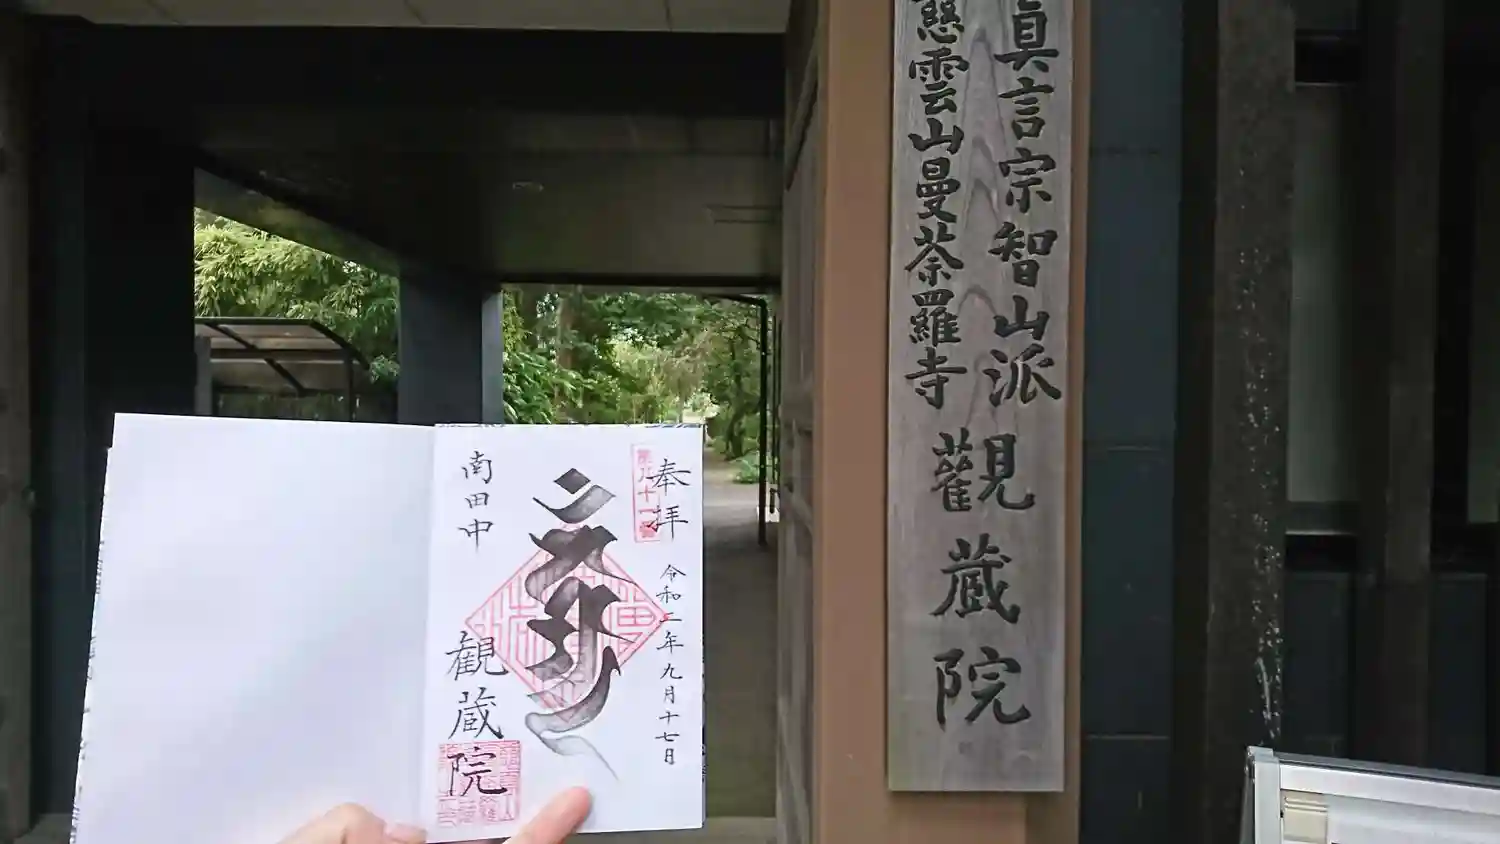 眞言宗智山派
慈雲山曼荼羅寺
觀蔵院
奉拝
令和二年九月十七日
南田中
観蔵院